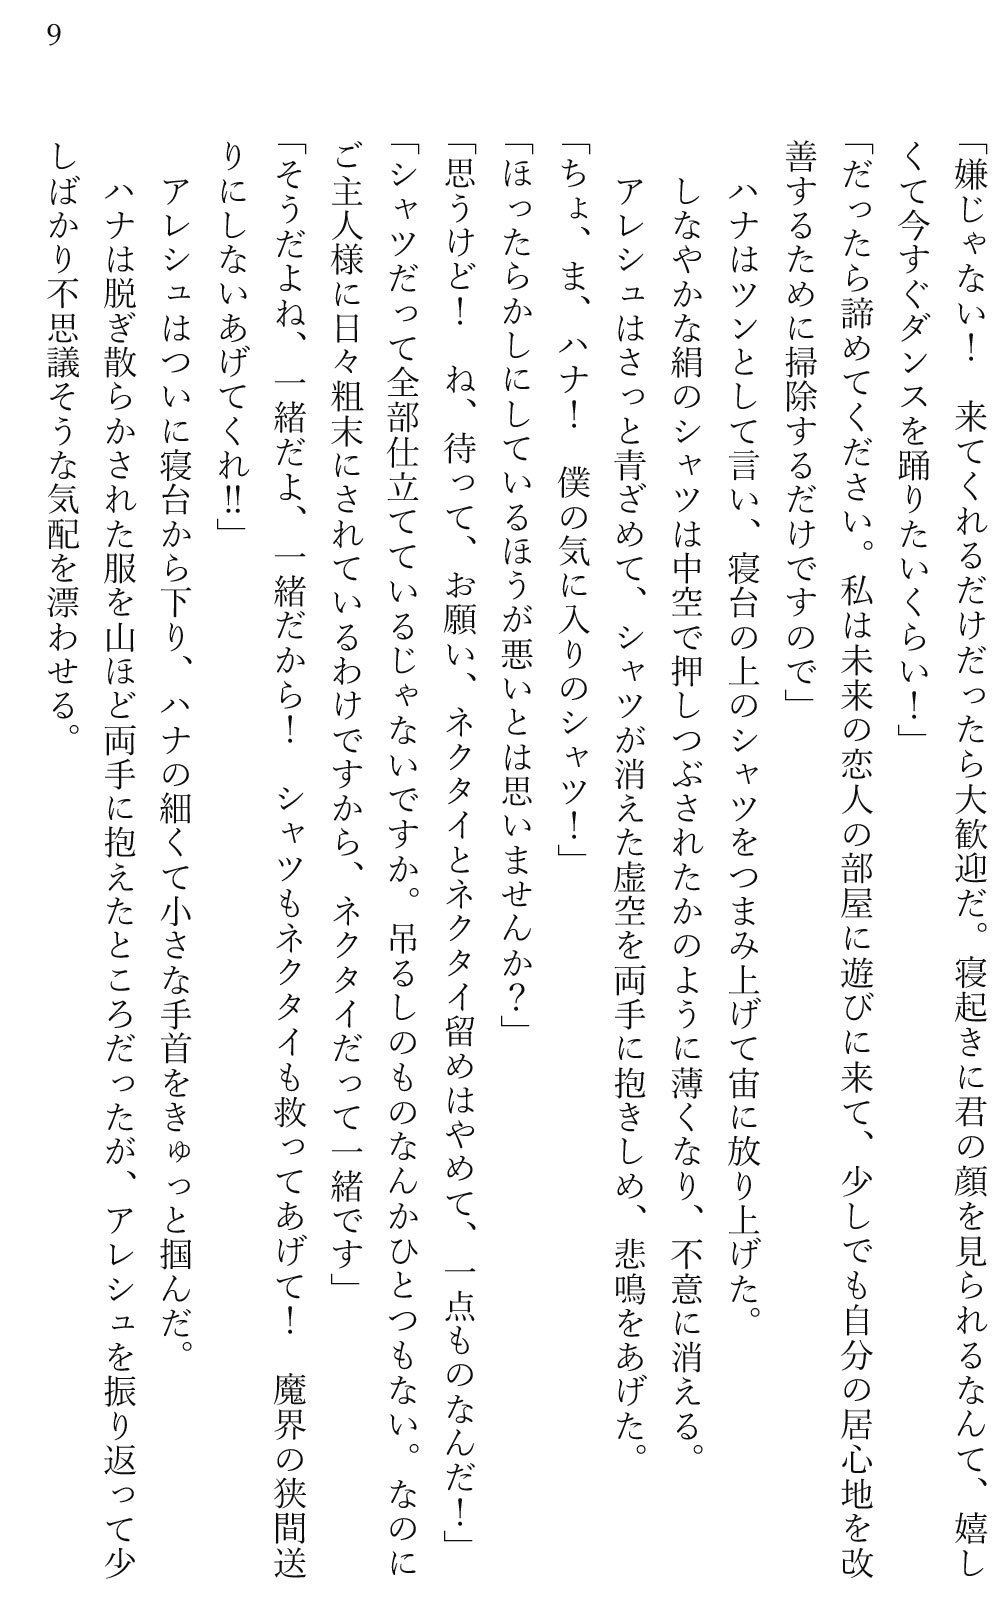 9
「嫌じゃない！　来てくれるだけだったら大歓迎だ。寝起きに君の顔を見られるなんて、嬉し
くて今すぐダンスを踊りたいくらい！」
「だったら諦めてください。私は未来の恋人の部屋に遊びに来て、少しでも自分の居心地を改
善するために掃除するだけですので」
　ハナはツンとして言い、寝台の上のシャツをつまみ上げて宙に放り上げた。
　しなやかな絹のシャツは中空で押しつぶされたかのように薄くなり、不意に消える。
　アレシュはさっと青ざめて、シャツが消えた虚空を両手に抱きしめ、悲鳴をあげた。
「ちょ、ま、ハナ！　僕の気に入りのシャツ！」
「ほったらかしにしているほうが悪いとは思いませんか？」
「思うけど！　ね、待って、お願い、ネクタイとネクタイ留めはやめて、一点ものなんだ！」
「シャツだって全部仕立てているじゃないですか。吊るしのものなんかひとつもない。なのに
ご主人様に日々粗末にされているわけですから、ネクタイだって一緒です」
「そうだよね、一緒だよ、一緒だから！　シャツもネクタイも救ってあげて！　魔界の狭間送
りにしないあげてくれ!!」
　アレシュはついに寝台から下り、ハナの細くて小さな手首をきゅっと掴んだ。
　ハナは脱ぎ散らかされた服を山ほど両手に抱えたところだったが、アレシュを振り返って少
しばかり不思議そうな気配を漂わせる。